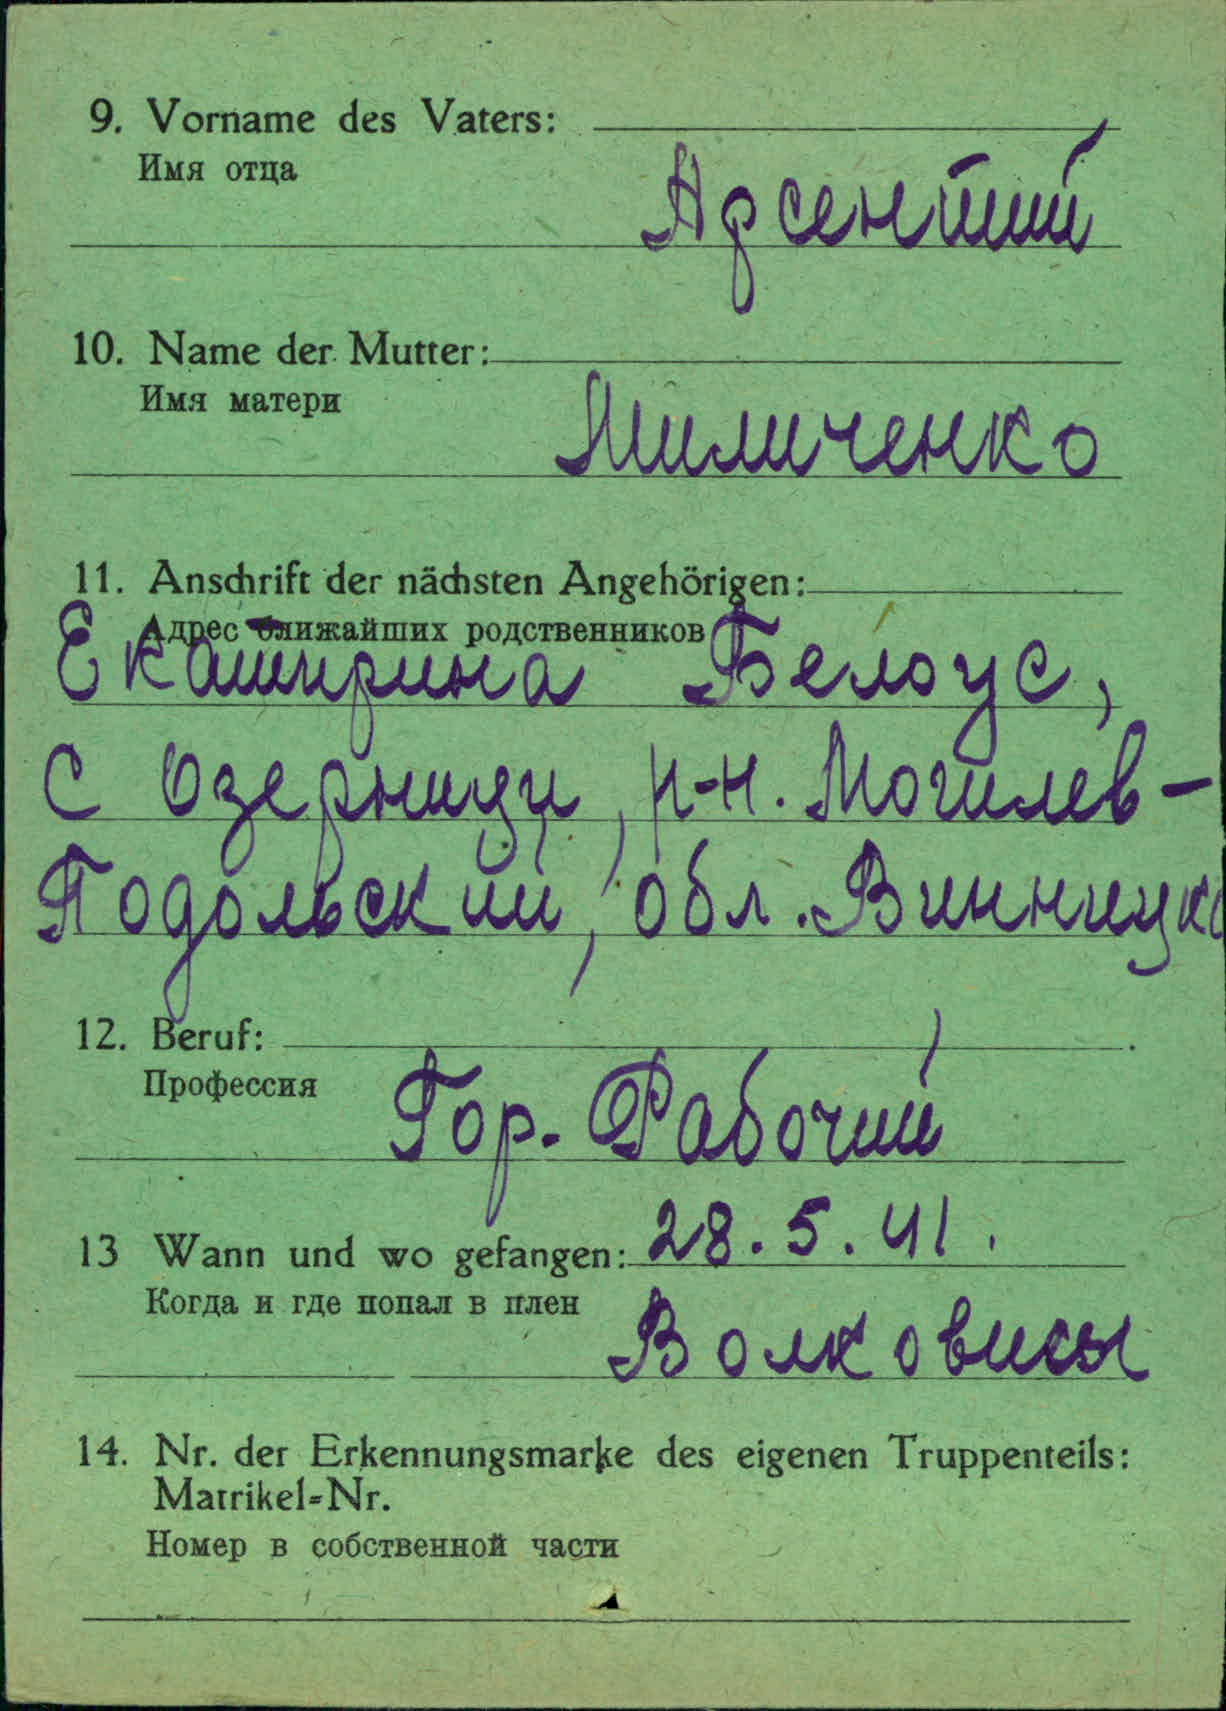 9. Vorname des Vaters:
Имя отца
Арсентий
10. Name der Mutter:
Имя матери
Миличенко
11. Anschrift der nächsten Angehörigen:
Адрес ближайших родственников
Екатирина Белоус,
с Озерници, р-н. Могилев-
Подольский, обл. Винницко
12. Beruf:
Профессия
Гор. Рабочий
13 Wann und wo gefangen: 28.5.41.
Когда и где попал в плен
Волковисы
14. Nr. der Erkennungsmarke des eigenen Truppenteils:
Matrikel-Nr.
Номер в собственной части